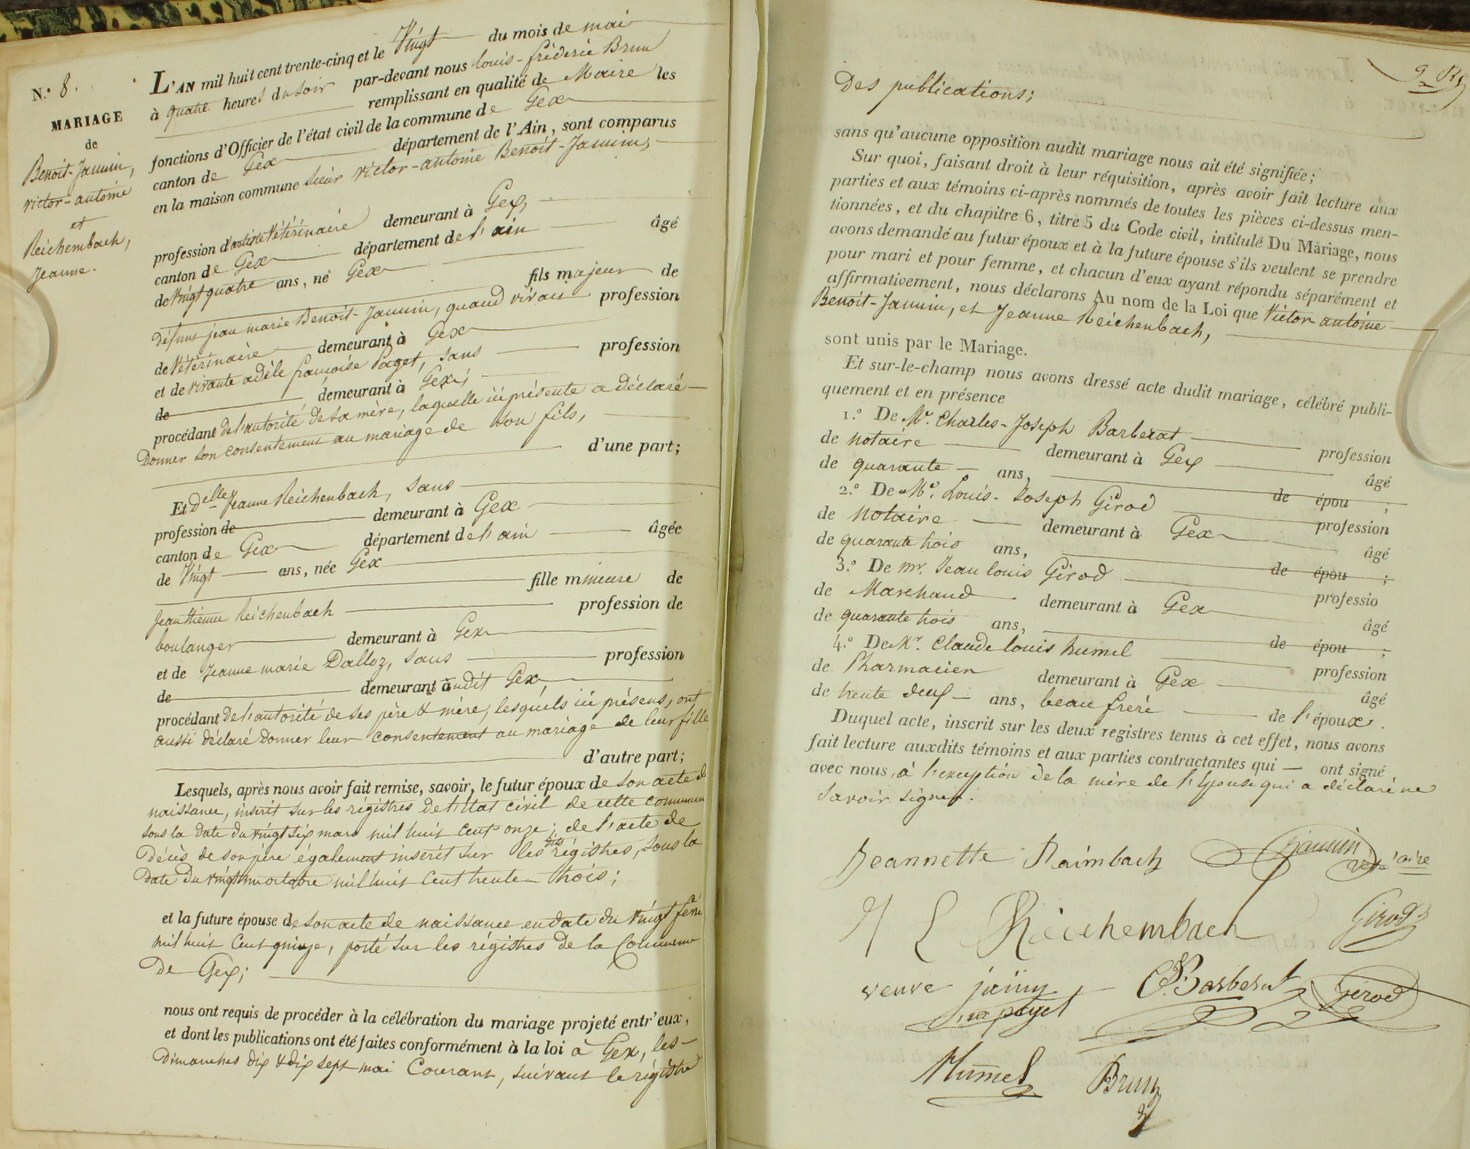 N.º 8.
MARIAGE
de
Benoit-Janin,
victor-antoine
et
Reichembach,
Jeanne.
L'AN mil huit cent trente-cinq et le Vingt du mois de mai
à quatre heures du soir par-devant nous louis-fréderic Brun
remplissant en qualité de Maire les
fonctions d'Officier de l'état civil de la commune de Gex
canton de Gex département de l'Ain, sont comparus
en la maison commune Sieur victor-antoine Benoit-Janin,
profession d'artiste vétérinaire demeurant à Gex,
canton de Gex département de l'ain âgé
de vingt quatre ans, né Gex
fils majeur de
défunt jean marie Benoit-Janin, quand vivait profession
de vétérinaire demeurant à Gex
et de vivante adèle françoise Paget, sans profession
de demeurant à Gex,
procédant de l'autorité de sa mère, laquelle ici présente a déclaré
donner son consentement au mariage de son fils,
d'une part;
Et delle Jeanne Reichenbach, sans
profession de demeurant à Gex
canton de Gex département de l'ain âgée
de Vingt ans, née Gex
fille mineure de
Reichenbach profession de
boulanger demeurant à Gex
et de Jeanne marie Dalloz, sans profession
de demeurant audit Gex
procédant de l'autorité de ses père & mère, lesquels ici présens, ont
aussi déclaré donner leur consentement au mariage de leur fille
d'autre part;
Lesquels, après nous avoir fait remise, savoir, le futur époux de son acte de
naissance, inscrit sur les régistres de l'état civil de cette commune
sous la date du vingt six mars mil huit cent onze; de l'acte de
décès de son père également inscrit sur les dits régistres, sous la
date du octobre mil huit cent trente trois;
et la future épouse de son acte de naissance en date du vingt
mil huit cent quinze, porté sur les régistres de la Commune
de Gex;
nous ont requis de procéder à la célébration du mariage projeté entr'eux,
et dont les publications ont été faites conformément à la loi à Gex, les
dimanches dix & dix sept mai Courant, suivant le régistre
Des publications;
sans qu'aucune opposition audit mariage nous ait été signifiée;
Sur quoi, faisant droit à leur réquisition, après avoir fait lecture aux
parties et aux témoins ci-après nommés de toutes les pièces ci-dessus men-
tionnées, et du chapitre 6, titre 5 du Code civil, intitulé Du Mariage, nous
avons demandé au futur époux et à la future épouse s'ils veulent se prendre
pour mari et pour femme, et chacun d'eux ayant répondu séparément et
affirmativement, nous déclarons Au nom de la Loi que Victor antoine
Benoit-Janin, et Jeanne Reichenbach,
sont unis par le Mariage.
Et sur-le-champ nous avons dressé acte dudit mariage, célébré publi-
quement et en présence
1.º De Mr. Charles-Joseph Barberat profession
de notaire demeurant à Gex âgé
de quarante ans, de épou ;
2.º De Mr. Louis-Joseph Girod profession
de notaire demeurant à Gex âgé
de quarante trois ans, de épou ;
3.º De mr. Jean louis Girod professio
de Marchand demeurant à Gex âgé
de quarante trois ans, de épou ;
4.º De Mr. Claude louis humel profession
de Pharmacien demeurant à Gex âgé
de trente deux ans, beau frère de l'époux.
Duquel acte, inscrit sur les deux registres tenus à cet effet, nous avons
fait lecture auxdits témoins et aux parties contractantes qui ont signé
avec nous, à l'exception de la mère de l'épouse qui a déclaré ne
savoir signer.
Jeannette Raimbach Jannin
Reichembach Girod
veuve janin
née paget C. Barberat Girod
Humel Brun